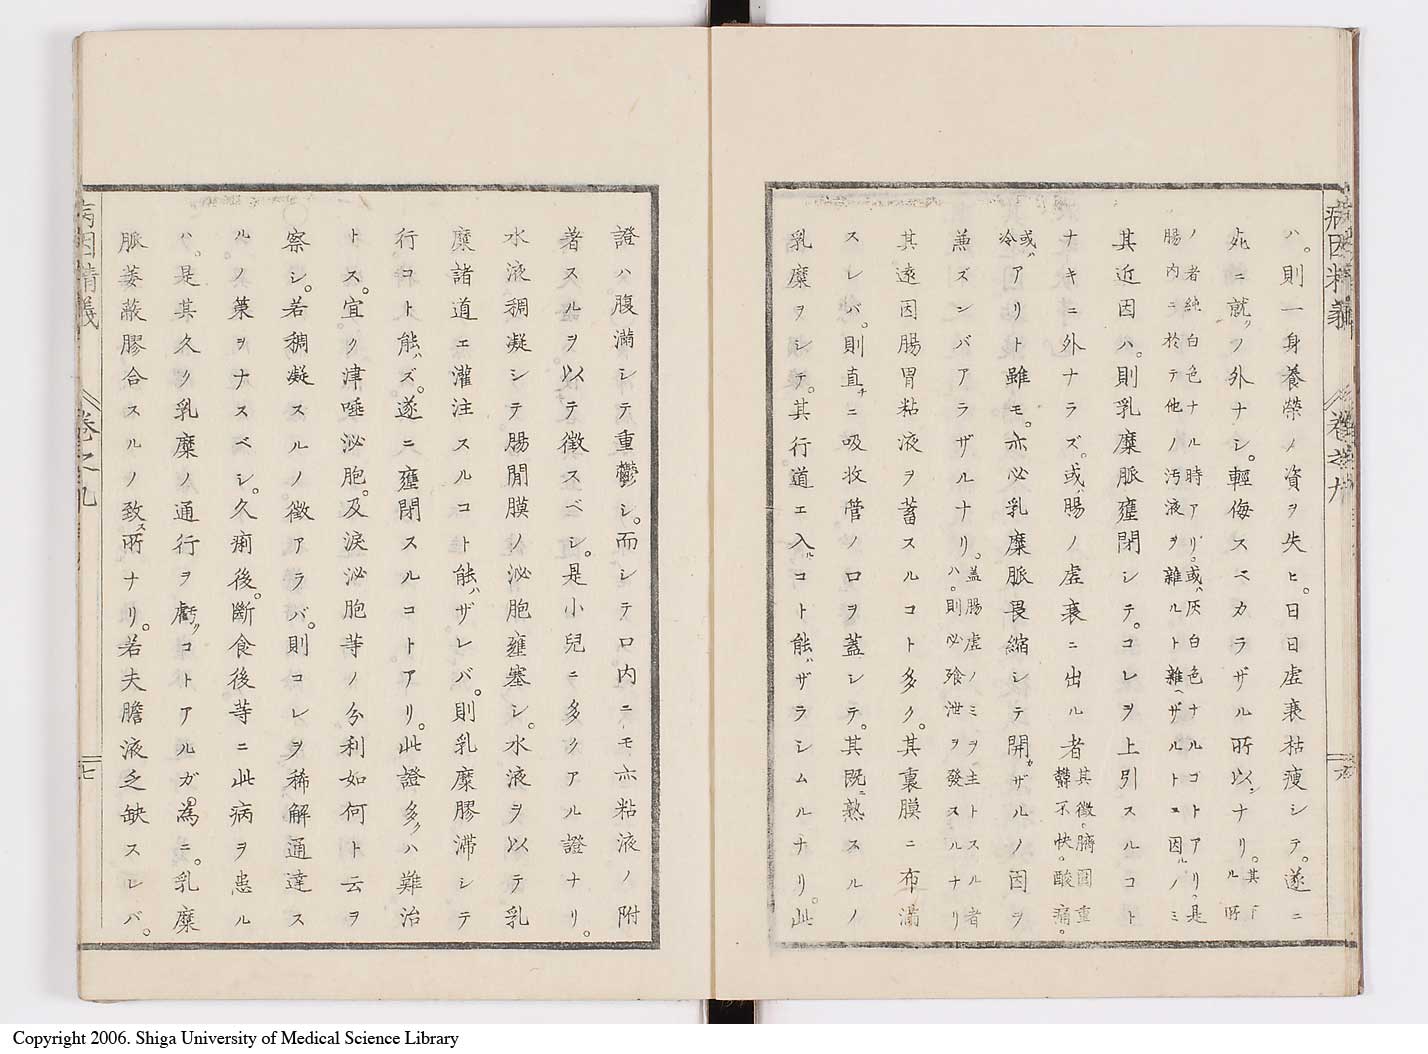 ハ。則一身養榮ノ資ヲ失ヒ。日日虛衰枯瘦シテ。遂ニ
死ニ就クノ外ナシ。輕侮スベカラザル所以ナリ。其下ル所
ノ者純白色ナル時アリ。或ハ灰白色ナルコトアリ。是
腸内ニ於テ他ノ汚液ヲ雜ルト雜ヘザルトニ因ルノミ
其近因ハ。則乳糜脈壅閉シテ。コレヲ上引スルコト
ナキニ外ナラズ。或ハ腸ノ虛衰ニ出ル者其徵。臍圍重
韾不快。酸痛。
或ハ冷アリト雖モ。亦必乳糜脈畏縮シテ開カザルノ因ヲ
兼ズンバアラザルナリ。蓋腸虛ノミヲ主トスル者
ハ。則必飧泄ヲ發スルナリ
其遠因腸胃粘液ヲ蓄スルコト多ク。其裏膜ニ布滿
スレバ。則直チニ吸收管ノ口ヲ蓋シテ。其既ニ熟スルノ
乳糜ヲシテ。其行道エ入ルコト能ハザラシムルナリ。此
病因精義 卷之九 六
證ハ腹滿シテ重鬱シ。而シテ口内ニモ亦粘液ノ附
著スルヲ以テ徵スベシ。是小兒ニ多クアル證ナリ。
水液稠凝シテ腸間膜ノ泌胞壅塞シ。水液ヲ以テ乳
糜諸道エ灌注スルコト能ハザレバ。則乳糜膠滯シテ
行コト能ハズ。遂ニ壅閉スルコトアリ。此證多クハ難治
トス。宜ク津唾泌胞。及淚泌胞等ノ分利如何ト云ヲ
察シ。若稠凝スルノ徵アラバ。則コレヲ稀解通達ス
ルノ策ヲナスベシ。久痢後。斷食後等ニ此病ヲ患ル
ハ。是其久ク乳糜ノ通行ヲ虧クコトアルガ為ニ。乳糜
脈萎蔽膠合スルノ致ス所ナリ。若夫膽液乏缺スレバ。
病因精義 卷之九 七
Copyright 2006. Shiga University of Medical Science Library